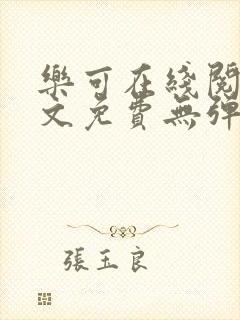 樂可在綫閱
文免費無彈
張玉良